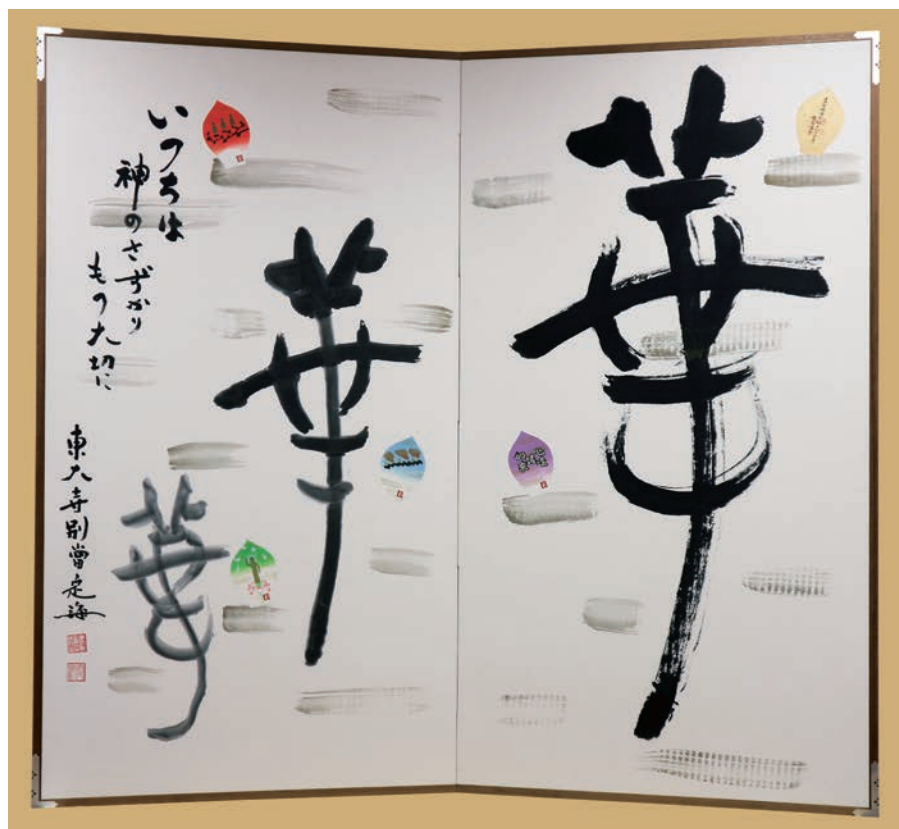 華
華
華
いのちは
神のさずかり
もの大切に
東大寺別當定海